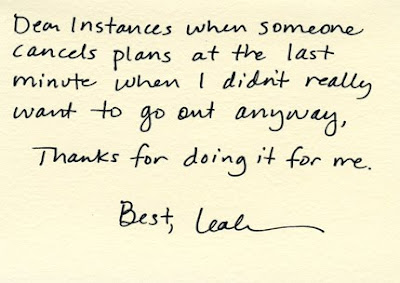 Dear Instances when someone
cancels plans at the last
minute when I didn't really
want to go out anyway,
Thanks for doing it for me.
Best, Leah